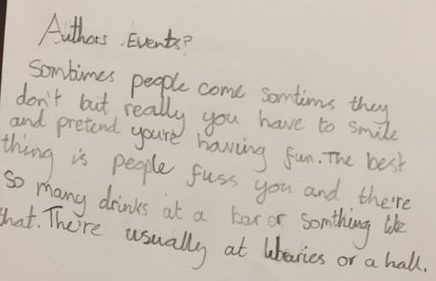 Authors Events?
Somtimes people come somtims they
don't but really you have to smile
and pretend you're having fun. The best
thing is people fuss you and the're
so many drinks at a bar or somthing like
that. The're usually at libaries or a hall.